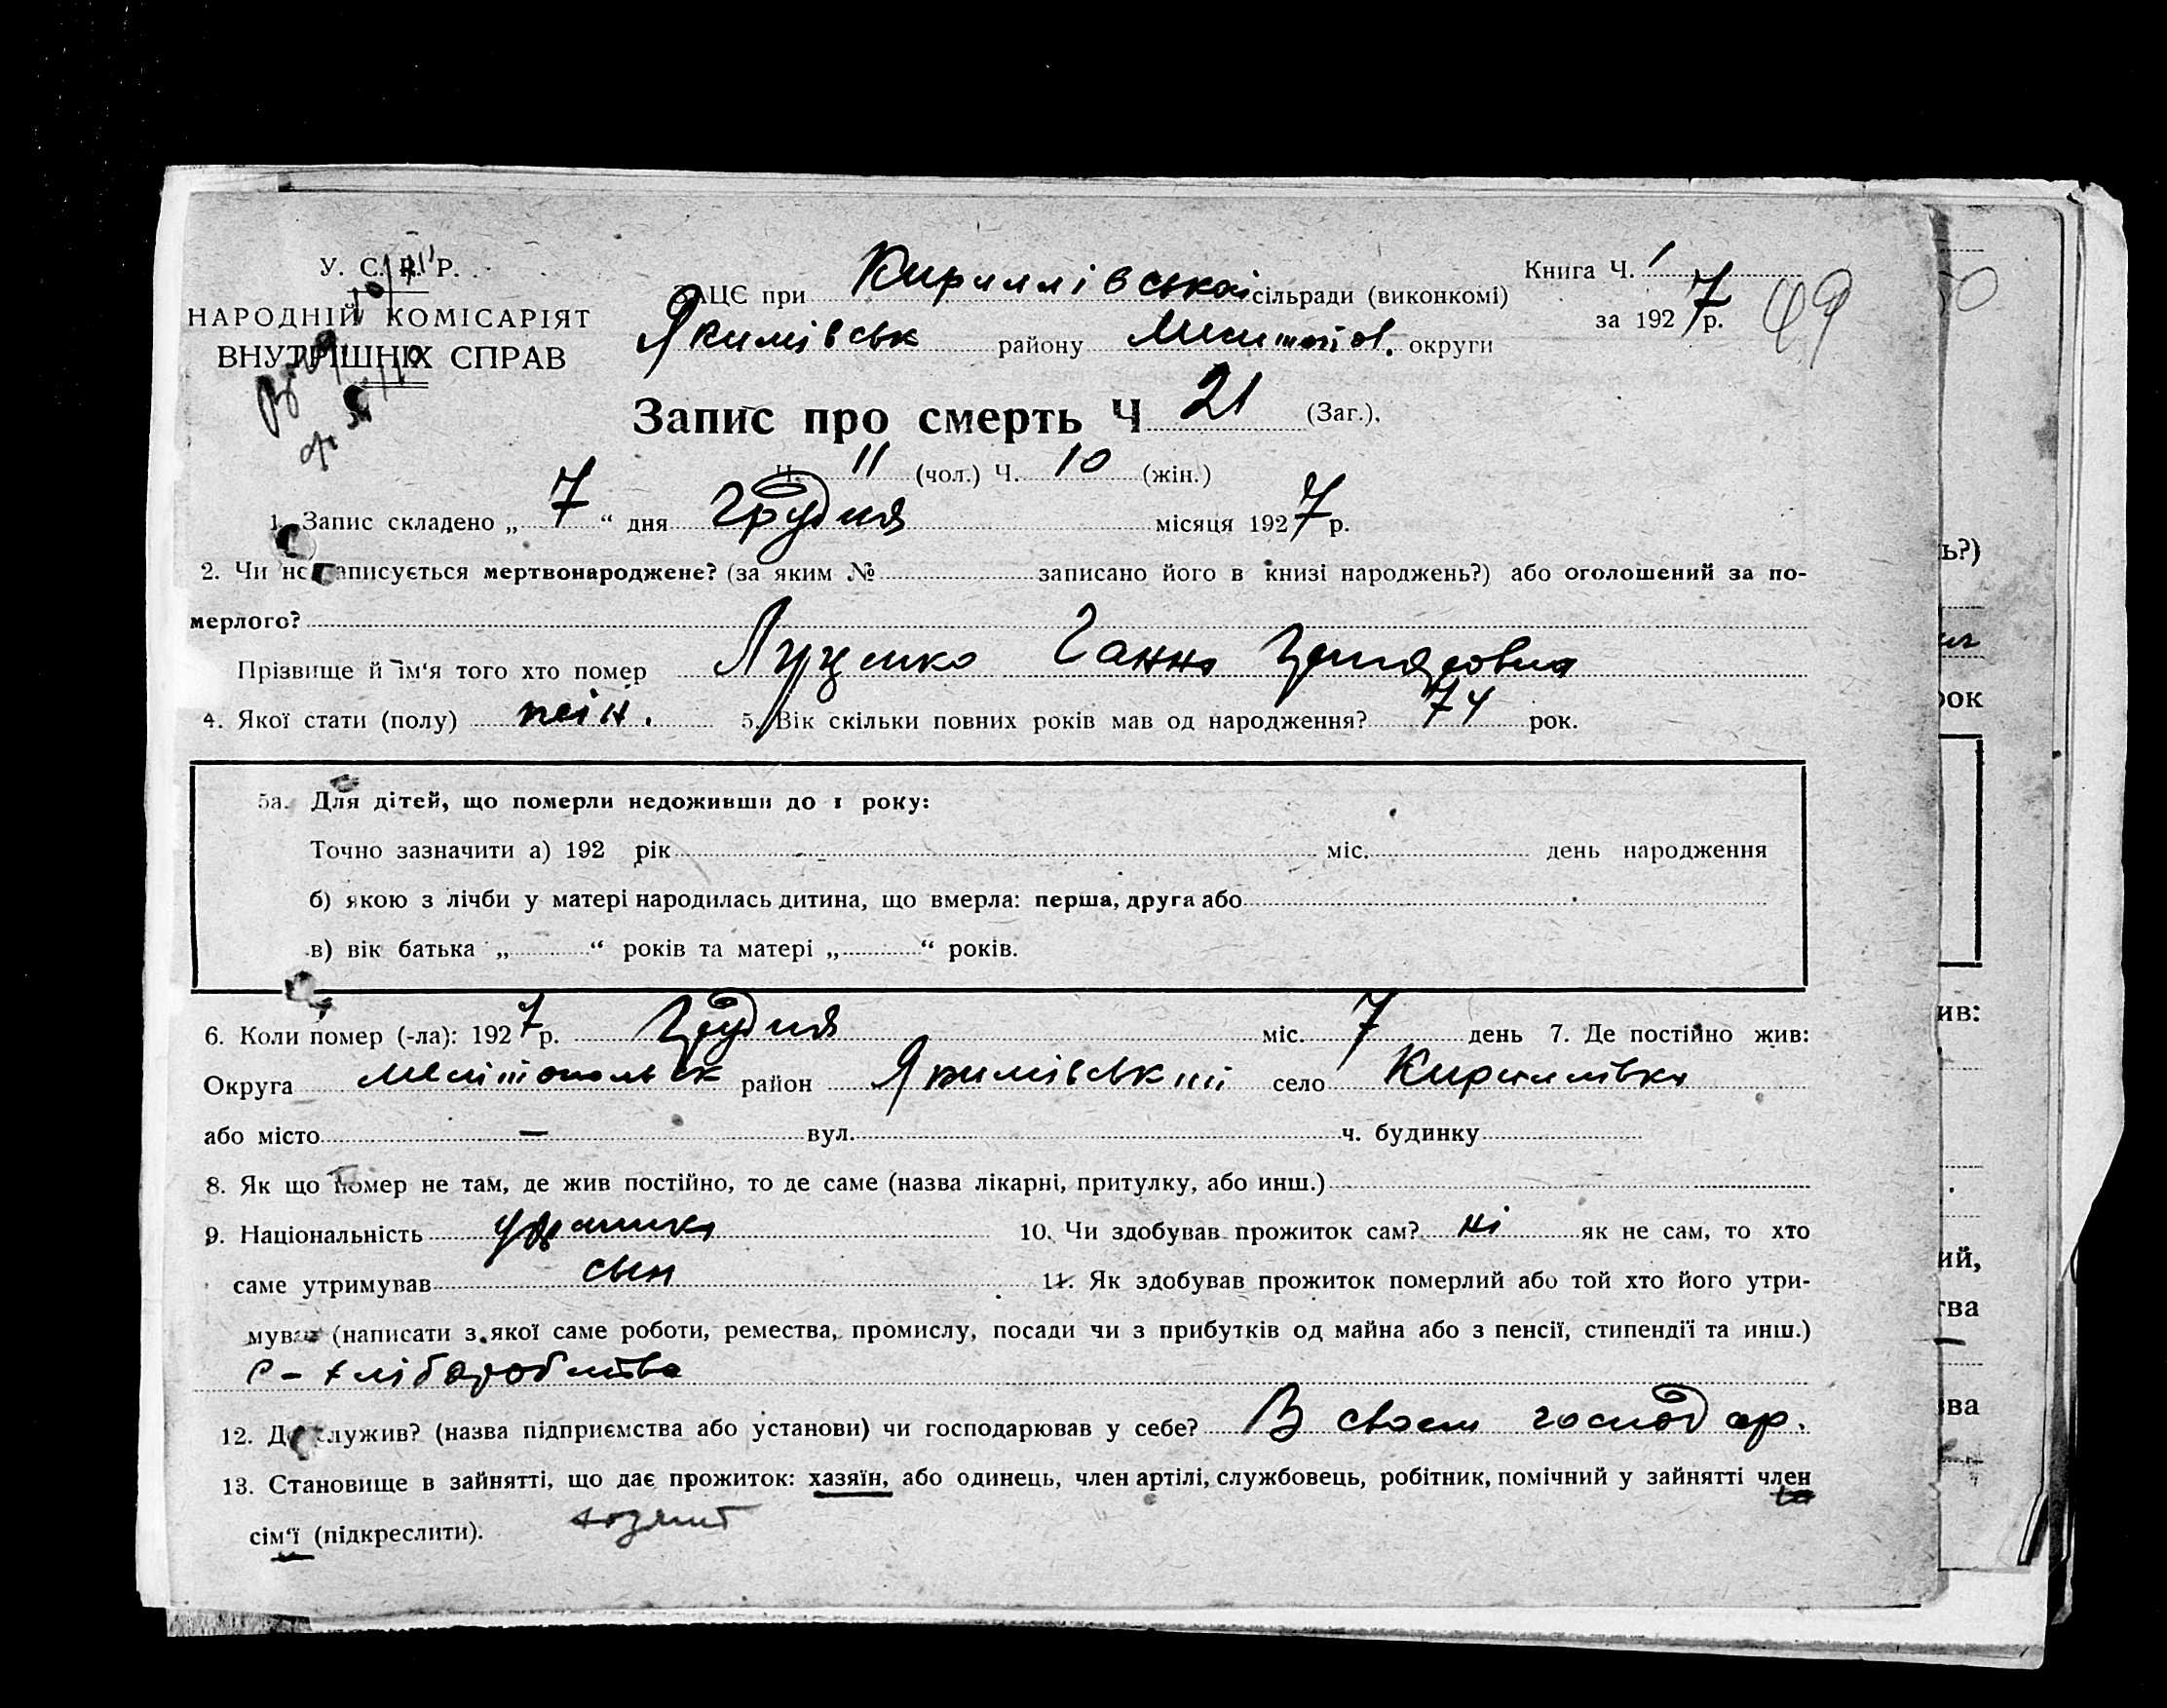 У. С. Р. Р.
НАРОДНІЙ КОМІСАРІЯТ
ВНУТРІШНІХ СПРАВ
ЗАЦС при Кириллівської сільради (виконкомі)
Якимівськ району Мелитоп. округи
Книга Ч. 1
за 1927 р.
49
Запис про смерть Ч 21 (Заг.),
Ч. 11 (чол.) Ч. 10 (жін.)
1. Запис складено „ 7 “ дня Грудня місяця 1927 р.
2. Чи не записується мертвонароджене? (за яким № записано його в книзі народжень?) або оголошений за по-
мерлого?
Прізвище й їм‘я того хто помер Луценко Ганна
4. Якої стати (полу) жін. 5. Вік скільки повних років мав од народження? 74 рок.
5а. Для дітей, що померли недоживши до 1 року:
Точно зазначити а) 192 рік міс. день народження
б) якою з лічби у матері народилась дитина, що вмерла: перша, друга або
в) вік батька „ “ років та матері „ “ років.
6. Коли помер (-ла): 1927 р. Грудня міс. 7 день 7. Де постійно жив:
Округа Мелітопольск район Якимівський село Кириллівка
або місто — вул. ч. будинку
8. Як що помер не там, де жив постійно, то де саме (назва лікарні, притулку, або инш.)
9. Національність українка 10. Чи здобував прожиток сам? ні як не сам, то хто
саме утримував сын 11. Як здобував прожиток померлий або той хто його утри-
мував (написати з якої саме роботи, ремества, промислу, посади чи з прибутків од майна або з пенсії, стипендії та инш.)
с-хліборобства
12. Де служив? (назва підприємства або установи) чи господарював у себе? В своем господар.
13. Становище в зайнятті, що дає прожиток: хазяїн, або одинець, член артілі, службовець, робітник, помічний у зайнятті член
сім‘ї (підкреслити).